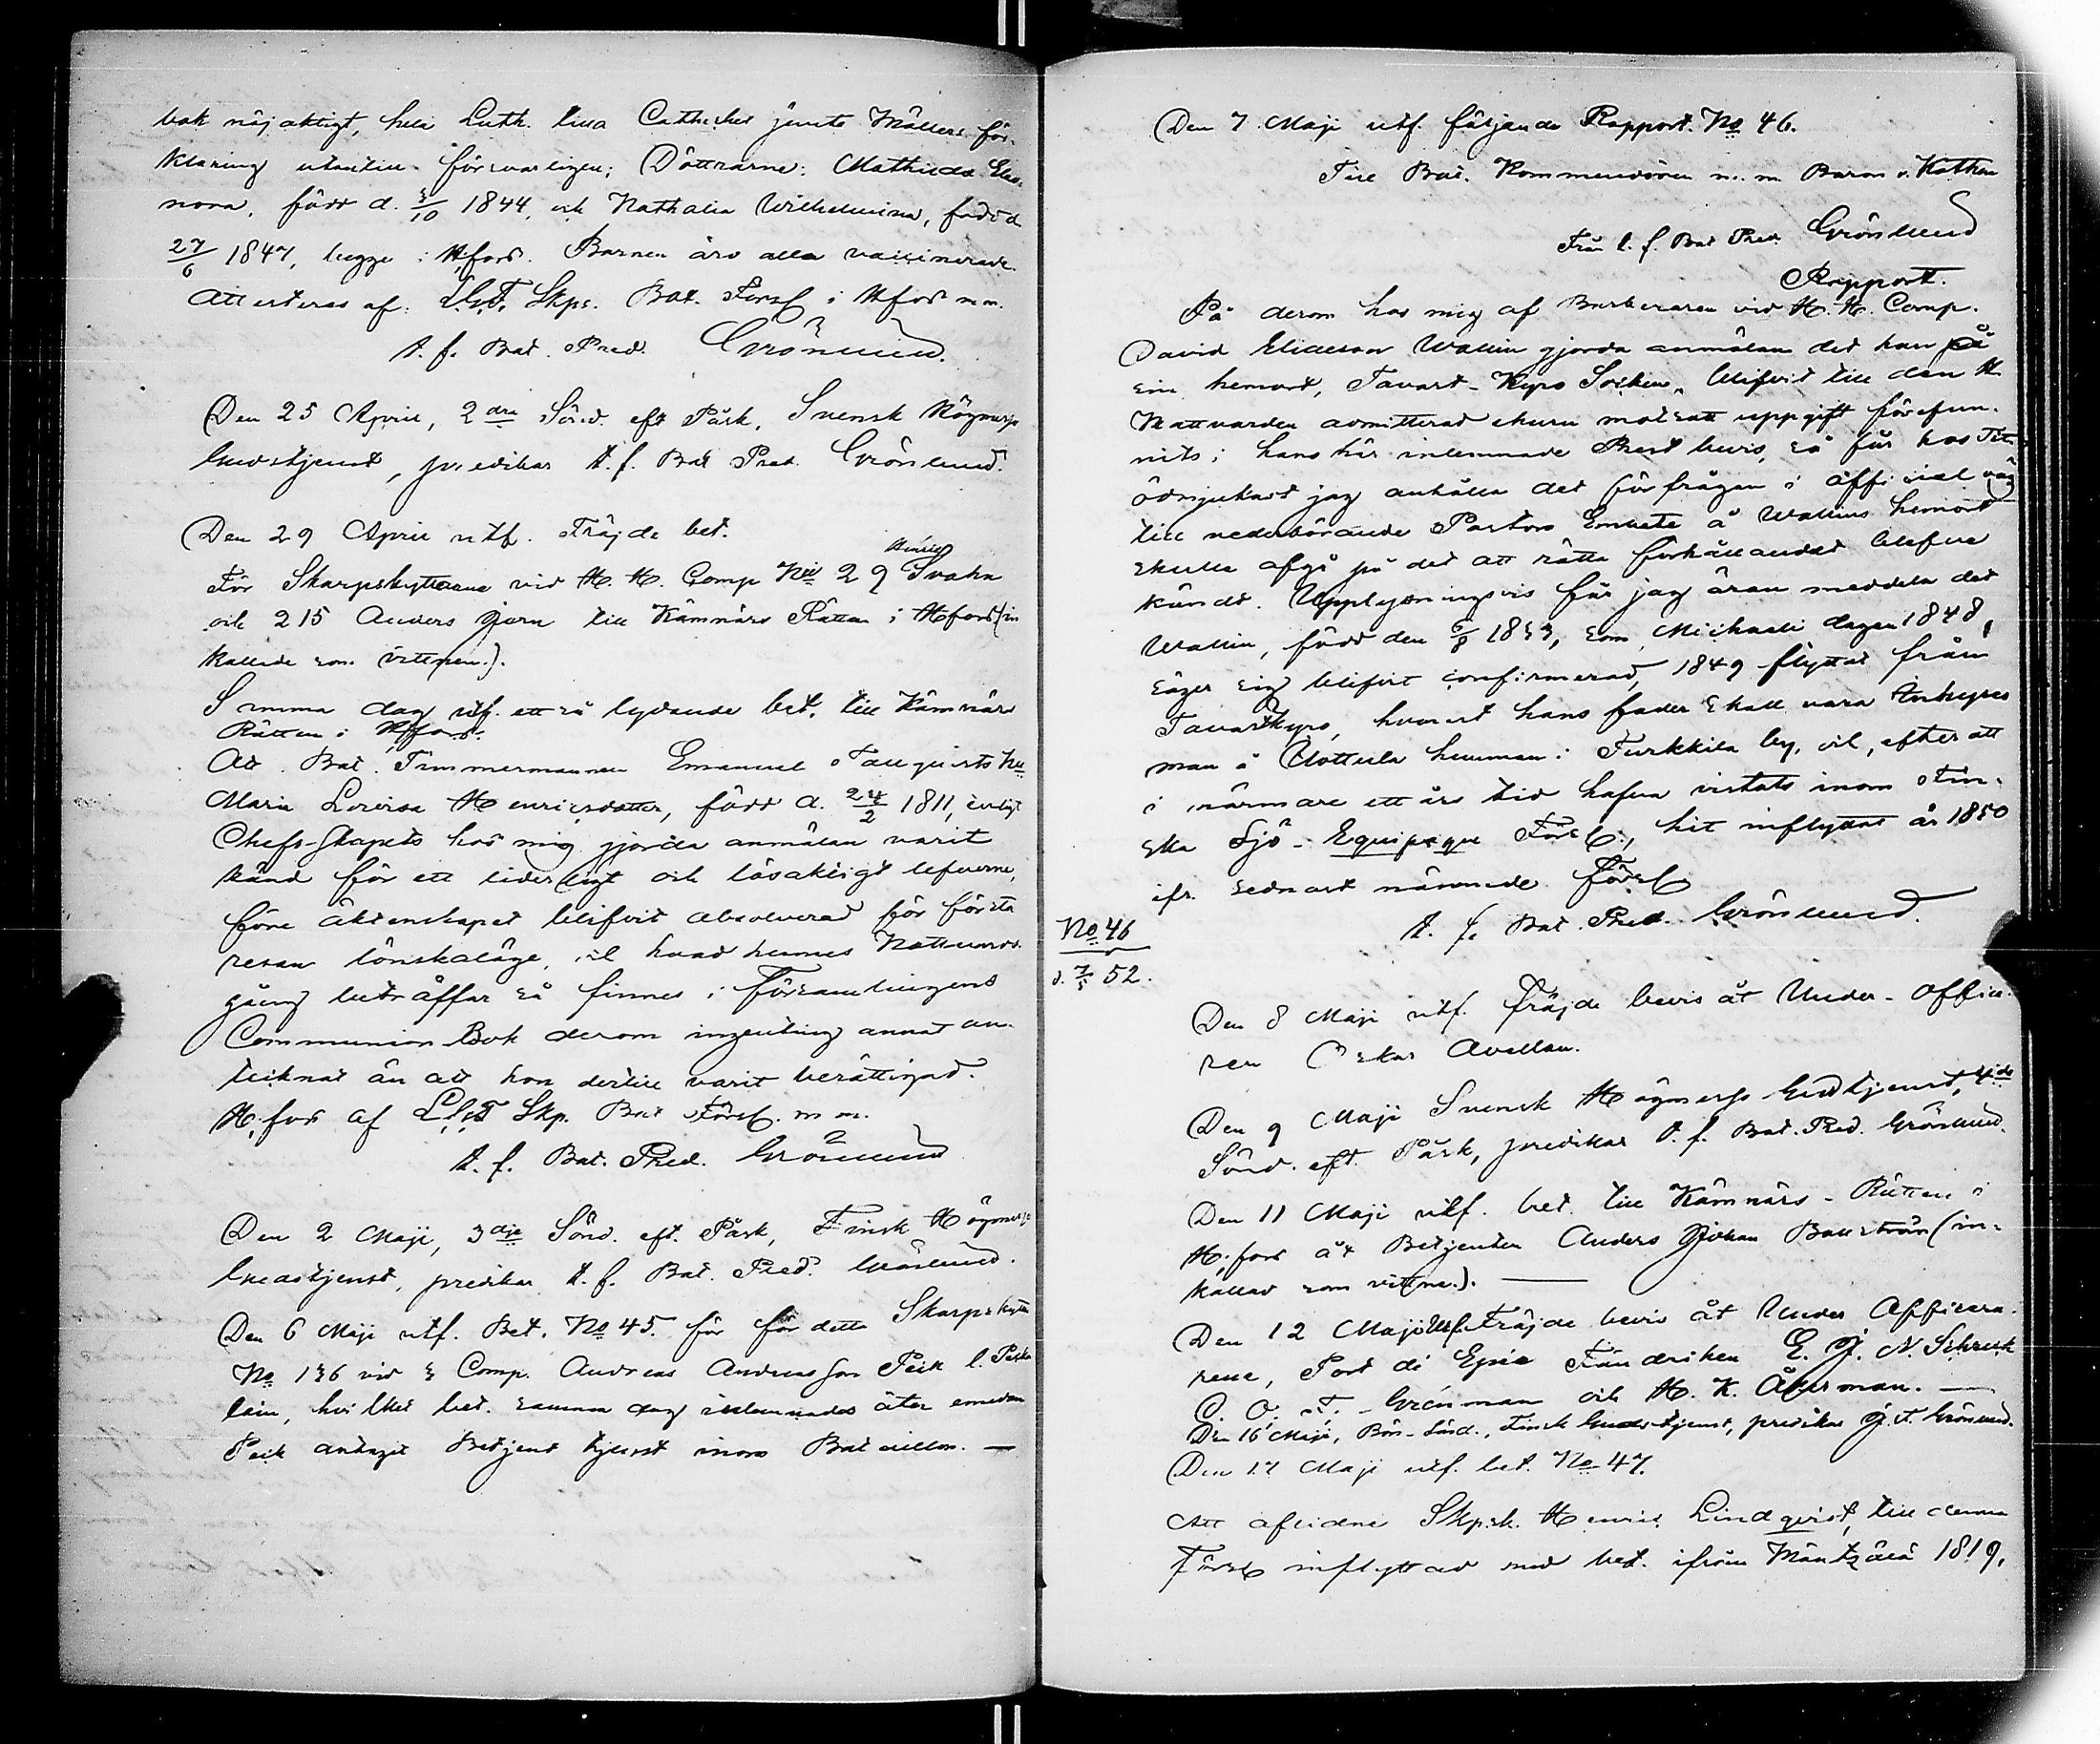 bok nöjaktigt, hela Luth. lilla Cathches jemte Möllers för-
klaring utantill försvarligen; Döttrarne: Mathilda Eleo-
nora, född d. 3/10 1844, och Nathalia Wilhelmina, född d
27/6 1847, begge i Hfors. Barnen äro alla vaccinerade.
Attesteras af: L.G.F. Skps. Bat. Förs. i Hfors m.m.
t. f. Bat. Pred. Grönlund.
Den 25 April, 2dra Sönd. eft Påsk, Svensk Högmesso
Gudstjenst, predikar t. f. Bat Pred. Grönlund.
Den 29 April utf. Fräjde bet.
För Skarpskyttarne vid H. H. Comp No 29 Henric Svahn
och 215 Anders Jern till Kämnärs Rätten i Hfors (in
kallade som vittnen.).
Samma dag utf. ett så lydande bet. till Kämnärs
Rätten i Hfors.
Att Bat. Timmermannen Emanuel Tallqvists Hu
Maria Lovisa Henricsdotter, född d. 24/2 1811, enligt
Chefs-skapets hos mig gjorda anmälan varit
känd för ett liderligt och lösaktigt lefverne,
före äktenskapet blifvit absolverad för första
resan lönskaläge, och hvad hennes Nattvards
gång beträffar så finnes i Församlingens
Communion Bok derom ingenting annat an-
tecknat än att hon dertill varit berättigad.
H,fors af L.G.F Skp. Bat Förs. m m.
t. f. Bat. Pred. Grönlund
Den 2 Maji, 3dje Sönd. eft. Påsk, Finsk Högmesso
Gudstjenst, predikar t. f. Bat. Pred. Grönlund.
Den 6 Maji utf. Bet. No 45. för för detta Skarpskytten
No 136 vid 3 Comp. Andreas Andreasson Peik l. Pekka
lain, hvilket bet. samma dag inlemnades åter emedan
Peik antagit Betjent tjenst inom Bataillon. —
Den 7 Maji utf. följande Rapport. No 46.
Till Bat. Kommendören m. m Baron v. Kothen
Från t. f. Bat Pred. Grönlund
Rapport.
På derom hos mig af Barberaren vid H. H. Comp.
David Eliasson Wallin gjorda anmälan det han på
sin hemort, Tavast-Kyro Socken, blifvit till den H.
Nattvarden admitterad ehuru motsatt uppgift förefun-
nits i hans här inlemnade Prest bevis, så får hos Tit.
ödmjukast jag anhålla det förfrågan i officiel väg
till vederbörande Pastors Embete å Wallins hemort
skulle afgå på det att rätta förhållandet blefve
kändt. Upplysningsvis får jag äran meddela det
Wallin, född den 6/8 1833, som Michaeli dagen 1848,
säger sig blifvit confirmerad, 1849 flyttat från
Tavastkyro, hvarest hans fader skall vara Torp
man å Uottula hemman i Turkkila by, och, efter att
i närmare ett års tid hafva vistats inom Fin-
ska Sjö-Equipagets Förs., hit inflyttat år 1850
ifr. sednast nämnde Förs.
t. f. Bat. Pred. Grönlund.
No 46
d. 7/5 52.
Den 8 Maji utf. fräjde bevis åt Under-office-
ren Oskar Avellan.
Den 9 Maji Svensk Högmesso Gudstjenst, 4de
Sönd. eft. Påsk, predikar t. f. Bat. Pred. Grönlund.
Den 11 Maji utf. bet. till Kämnärs-Rätten i
H,fors åt Betjenten Anders Johan Backström (in-
kallad som vittne.). —
Den 12 Maji utf. Fräjde bevis åt Under Officera-
rene, Port de Epée Fändriken E. J. N. Schreck
C. O. F. Grönman och H. K. Åkerman. —
Den 16 Maji, Bön-Sönd., Finsk Gudstjenst, predikar J. F. Grönlund.
Den 17 Maji utf. bet. No 47.
Att aflidne Skpsk. Henric Lindqvist, till denna
Förs inflyttad med bet. ifrån Mäntzälä 1819,